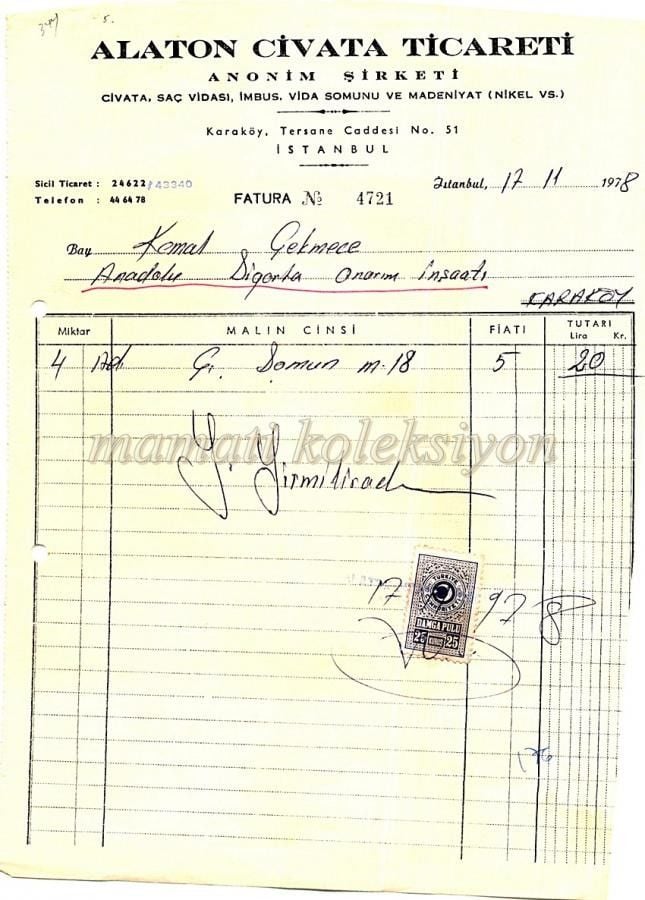 5.
ALATON CİVATA TİCARETİ
ANONİM ŞİRKETİ
CİVATA, SAÇ VİDASI, İMBUS, VİDA SOMUNU VE MADENİYAT (NİKEL VS.)
Karaköy, Tersane Caddesi No. 51
İSTANBUL
Sicil Ticaret : 24622/43340
Telefon : 44 64 78
FATURA № 4721
İstanbul, 17 11 1978
Bay Kemal Çekmece
Anadolu Sigorta onarım inşaatı
KARAKÖY
Miktar MALIN CİNSİ FİATI TUTARI
Lira Kr.
4 Ad. Somun m.18 5 20
mamati koleksiyon
Y. Yirmiliradır
TÜRKİYE CUMHURİYETİ
17 978
DAMGA PULU
25 KURUŞ 25